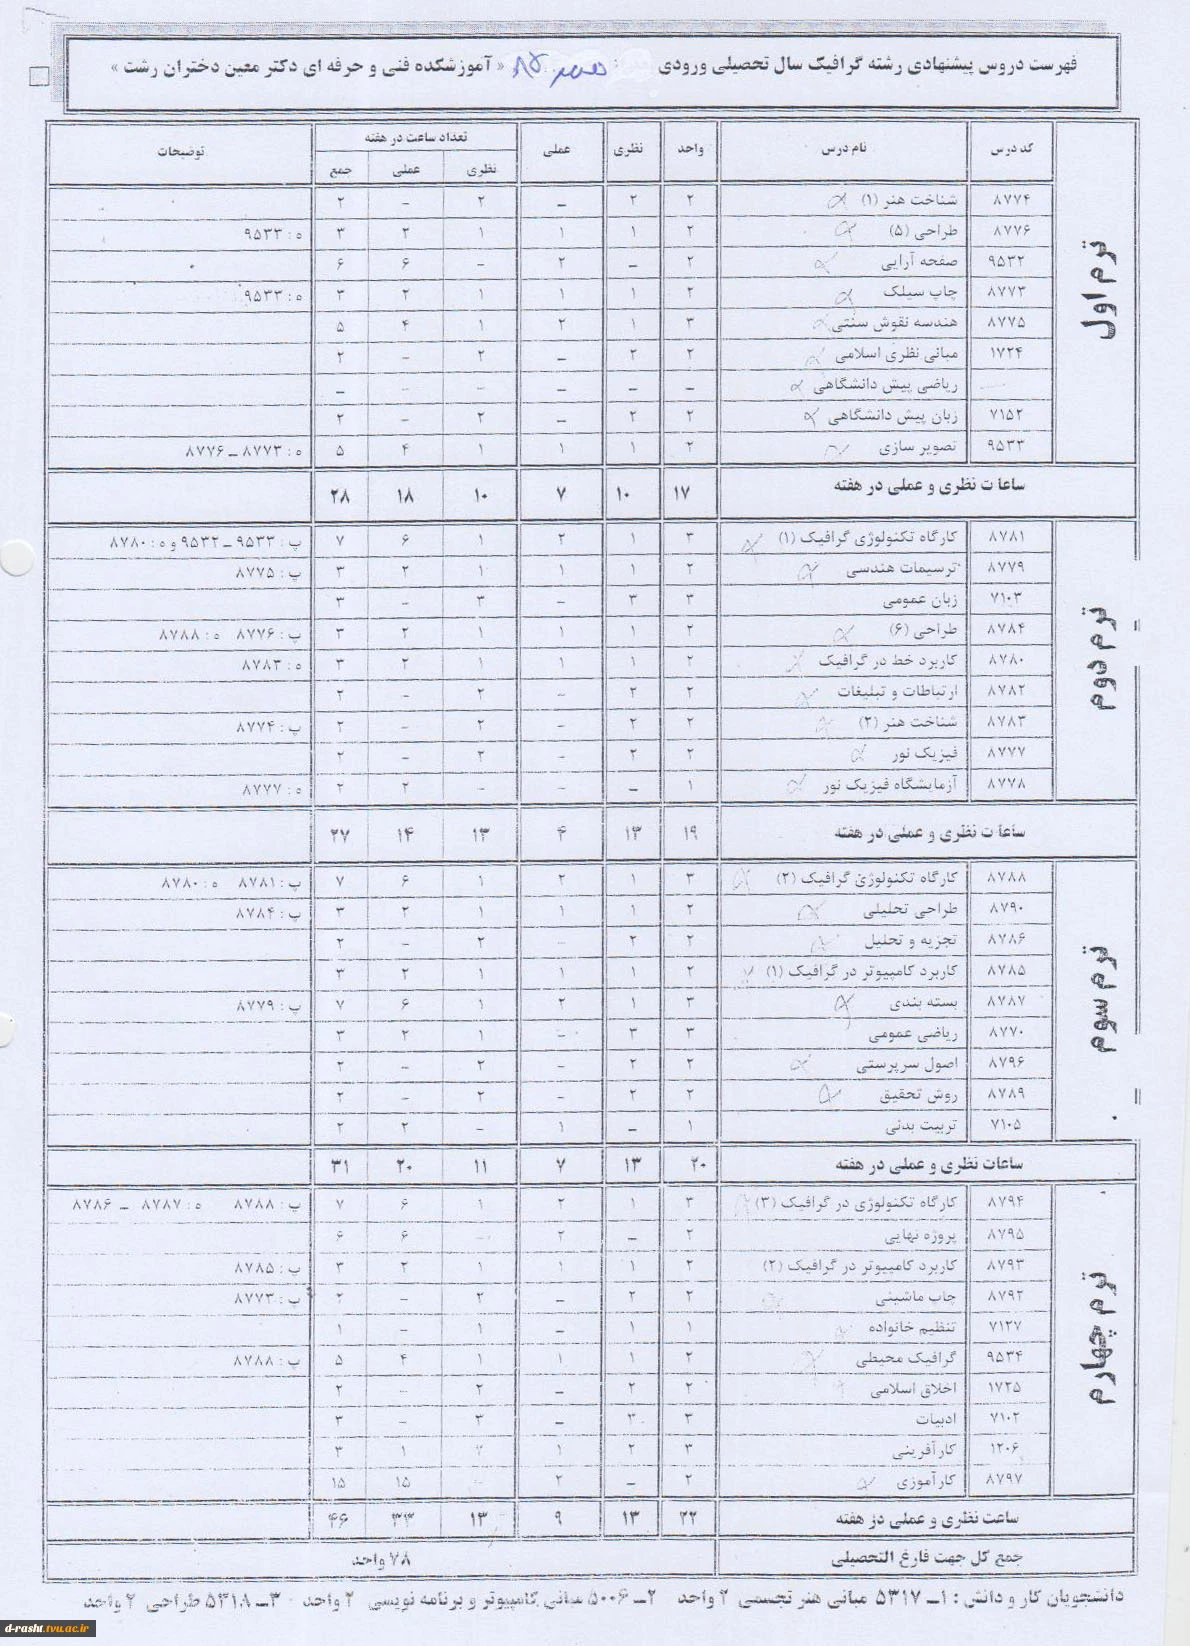 فهرست دروس پیشنهادی رشته گرافیک سال تحصیلی ورودی « آموزشکده فنی و حرفه ای دکتر معین دختران رشت »
کد درس نام درس واحد نظری عملی تعداد ساعت در هفته توضیحات
نظری عملی جمع
ترم اول
۸۷۷۴ شناخت هنر (۱) ۲ ۲ – ۲ – ۲
۸۷۷۶ طراحی (۵) ۲ ۱ ۱ ۱ ۲ ۳ ه : ۹۵۳۳
۹۵۳۲ صفحه آرایی ۲ – ۲ – ۶ ۶
۸۷۷۳ چاپ سیلک ۲ ۱ ۱ ۱ ۲ ۳ ه : ۹۵۳۳
۸۷۷۵ هندسه نقوش سنتی ۳ ۱ ۲ ۱ ۴ ۵
۱۷۲۴ مبانی نظری اسلامی ۲ ۲ – ۲ – ۲
ریاضی پیش دانشگاهی – – – – – –
۷۱۵۲ زبان پیش دانشگاهی ۲ ۲ – ۲ – ۲
۹۵۳۳ تصویر سازی ۲ ۱ ۱ ۱ ۴ ۵ ه : ۸۷۷۳ – ۸۷۷۶
ساعات نظری و عملی در هفته ۱۷ ۱۰ ۷ ۱۰ ۱۸ ۲۸
ترم دوم
۸۷۸۱ کارگاه تکنولوژی گرافیک (۱) ۳ ۱ ۲ ۱ ۶ ۷ پ : ۹۵۳۳ – ۹۵۳۲ و ه : ۸۷۸۰
۸۷۷۹ ترسیمات هندسی ۲ ۱ ۱ ۱ ۲ ۳ پ : ۸۷۷۵
۷۱۰۳ زبان عمومی ۳ ۳ – ۳ – ۳
۸۷۸۴ طراحی (۶) ۲ ۱ ۱ ۱ ۲ ۳ پ : ۸۷۷۶ ه : ۸۷۸۸
۸۷۸۰ کاربرد خط در گرافیک ۲ ۱ ۱ ۱ ۲ ۳ ه : ۸۷۸۳
۸۷۸۲ ارتباطات و تبلیغات ۲ ۲ – ۲ – ۲
۸۷۸۳ شناخت هنر (۲) ۲ ۲ – ۲ – ۲ پ : ۸۷۷۴
۸۷۷۷ فیزیک نور ۲ ۲ – ۲ – ۲
۸۷۷۸ آزمایشگاه فیزیک نور ۱ – – – ۲ ۲ ه : ۸۷۷۷
ساعات نظری و عملی در هفته ۱۹ ۱۳ ۴ ۱۳ ۱۴ ۲۷
ترم سوم
۸۷۸۸ کارگاه تکنولوژی گرافیک (۲) ۳ ۱ ۲ ۱ ۶ ۷ پ : ۸۷۸۱ ه : ۸۷۸۰
۸۷۹۰ طراحی تحلیلی ۲ ۱ ۱ ۱ ۲ ۳ پ : ۸۷۸۴
۸۷۸۶ تجزیه و تحلیل ۲ ۲ – ۲ – ۲
۸۷۸۵ کاربرد کامپیوتر در گرافیک (۱) ۲ ۱ ۱ ۱ ۲ ۳
۸۷۸۷ بسته بندی ۳ ۱ ۲ ۱ ۶ ۷ پ : ۸۷۷۹
۸۷۷۰ ریاضی عمومی ۳ ۳ – ۱ ۲ ۳
۸۷۹۶ اصول سرپرستی ۲ ۲ – ۲ – ۲
۸۷۸۹ روش تحقیق ۲ ۲ – ۲ – ۲
۷۱۰۵ تربیت بدنی ۱ – ۱ – ۲ ۲
ساعات نظری و عملی در هفته ۲۰ ۱۳ ۷ ۱۱ ۲۰ ۳۱
ترم چهارم
۸۷۹۴ کارگاه تکنولوژی در گرافیک (۳) ۳ ۱ ۲ ۱ ۶ ۷ پ : ۸۷۸۸ ه : ۸۷۸۷ – ۸۷۸۶
۸۷۹۵ پروژه نهایی ۲ – ۲ – ۶ ۶
۸۷۹۳ کاربرد کامپیوتر در گرافیک (۲) ۲ ۱ ۱ ۱ ۲ ۳ پ : ۸۷۸۵
۸۷۹۲ چاپ ماشینی ۲ ۲ – ۲ – ۲ پ : ۸۷۷۳
۷۱۲۷ تنظیم خانواده ۱ ۱ – ۱ – ۱
۹۵۳۴ گرافیک محیطی ۲ ۱ ۱ ۱ ۴ ۵ پ : ۸۷۸۸
۱۷۲۵ اخلاق اسلامی ۲ ۲ – ۲ – ۲
۷۱۰۲ ادبیات ۳ ۳ – ۳ – ۳
۱۲۰۶ کارآفرینی ۳ ۲ ۱ ۲ ۱ ۳
۸۷۹۷ کارآموزی ۲ – ۲ – ۱۵ ۱۵
ساعت نظری و عملی در هفته ۲۲ ۱۳ ۹ ۱۳ ۳۳ ۴۶
جمع کل جهت فارغ التحصیلی ۷۸ واحد
دانشجویان کار و دانش : ۱– ۵۳۱۷ مبانی هنر تجسمی ۲ واحد ۲– ۵۰۰۶ مبانی کامپیوتر و برنامه نویسی ۲ واحد ۳– ۵۳۱۸ طراحی ۲ واحد
d-rasht.tvu.ac.ir